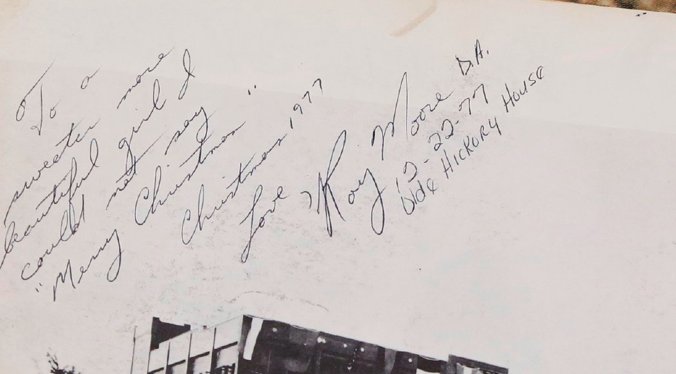 To a
sweeter more
beautiful girl I
could not say
"Merry Christmas"
Christmas 1977
Love,
Roy Moore D.A.
12-22-77
Olde Hickory House